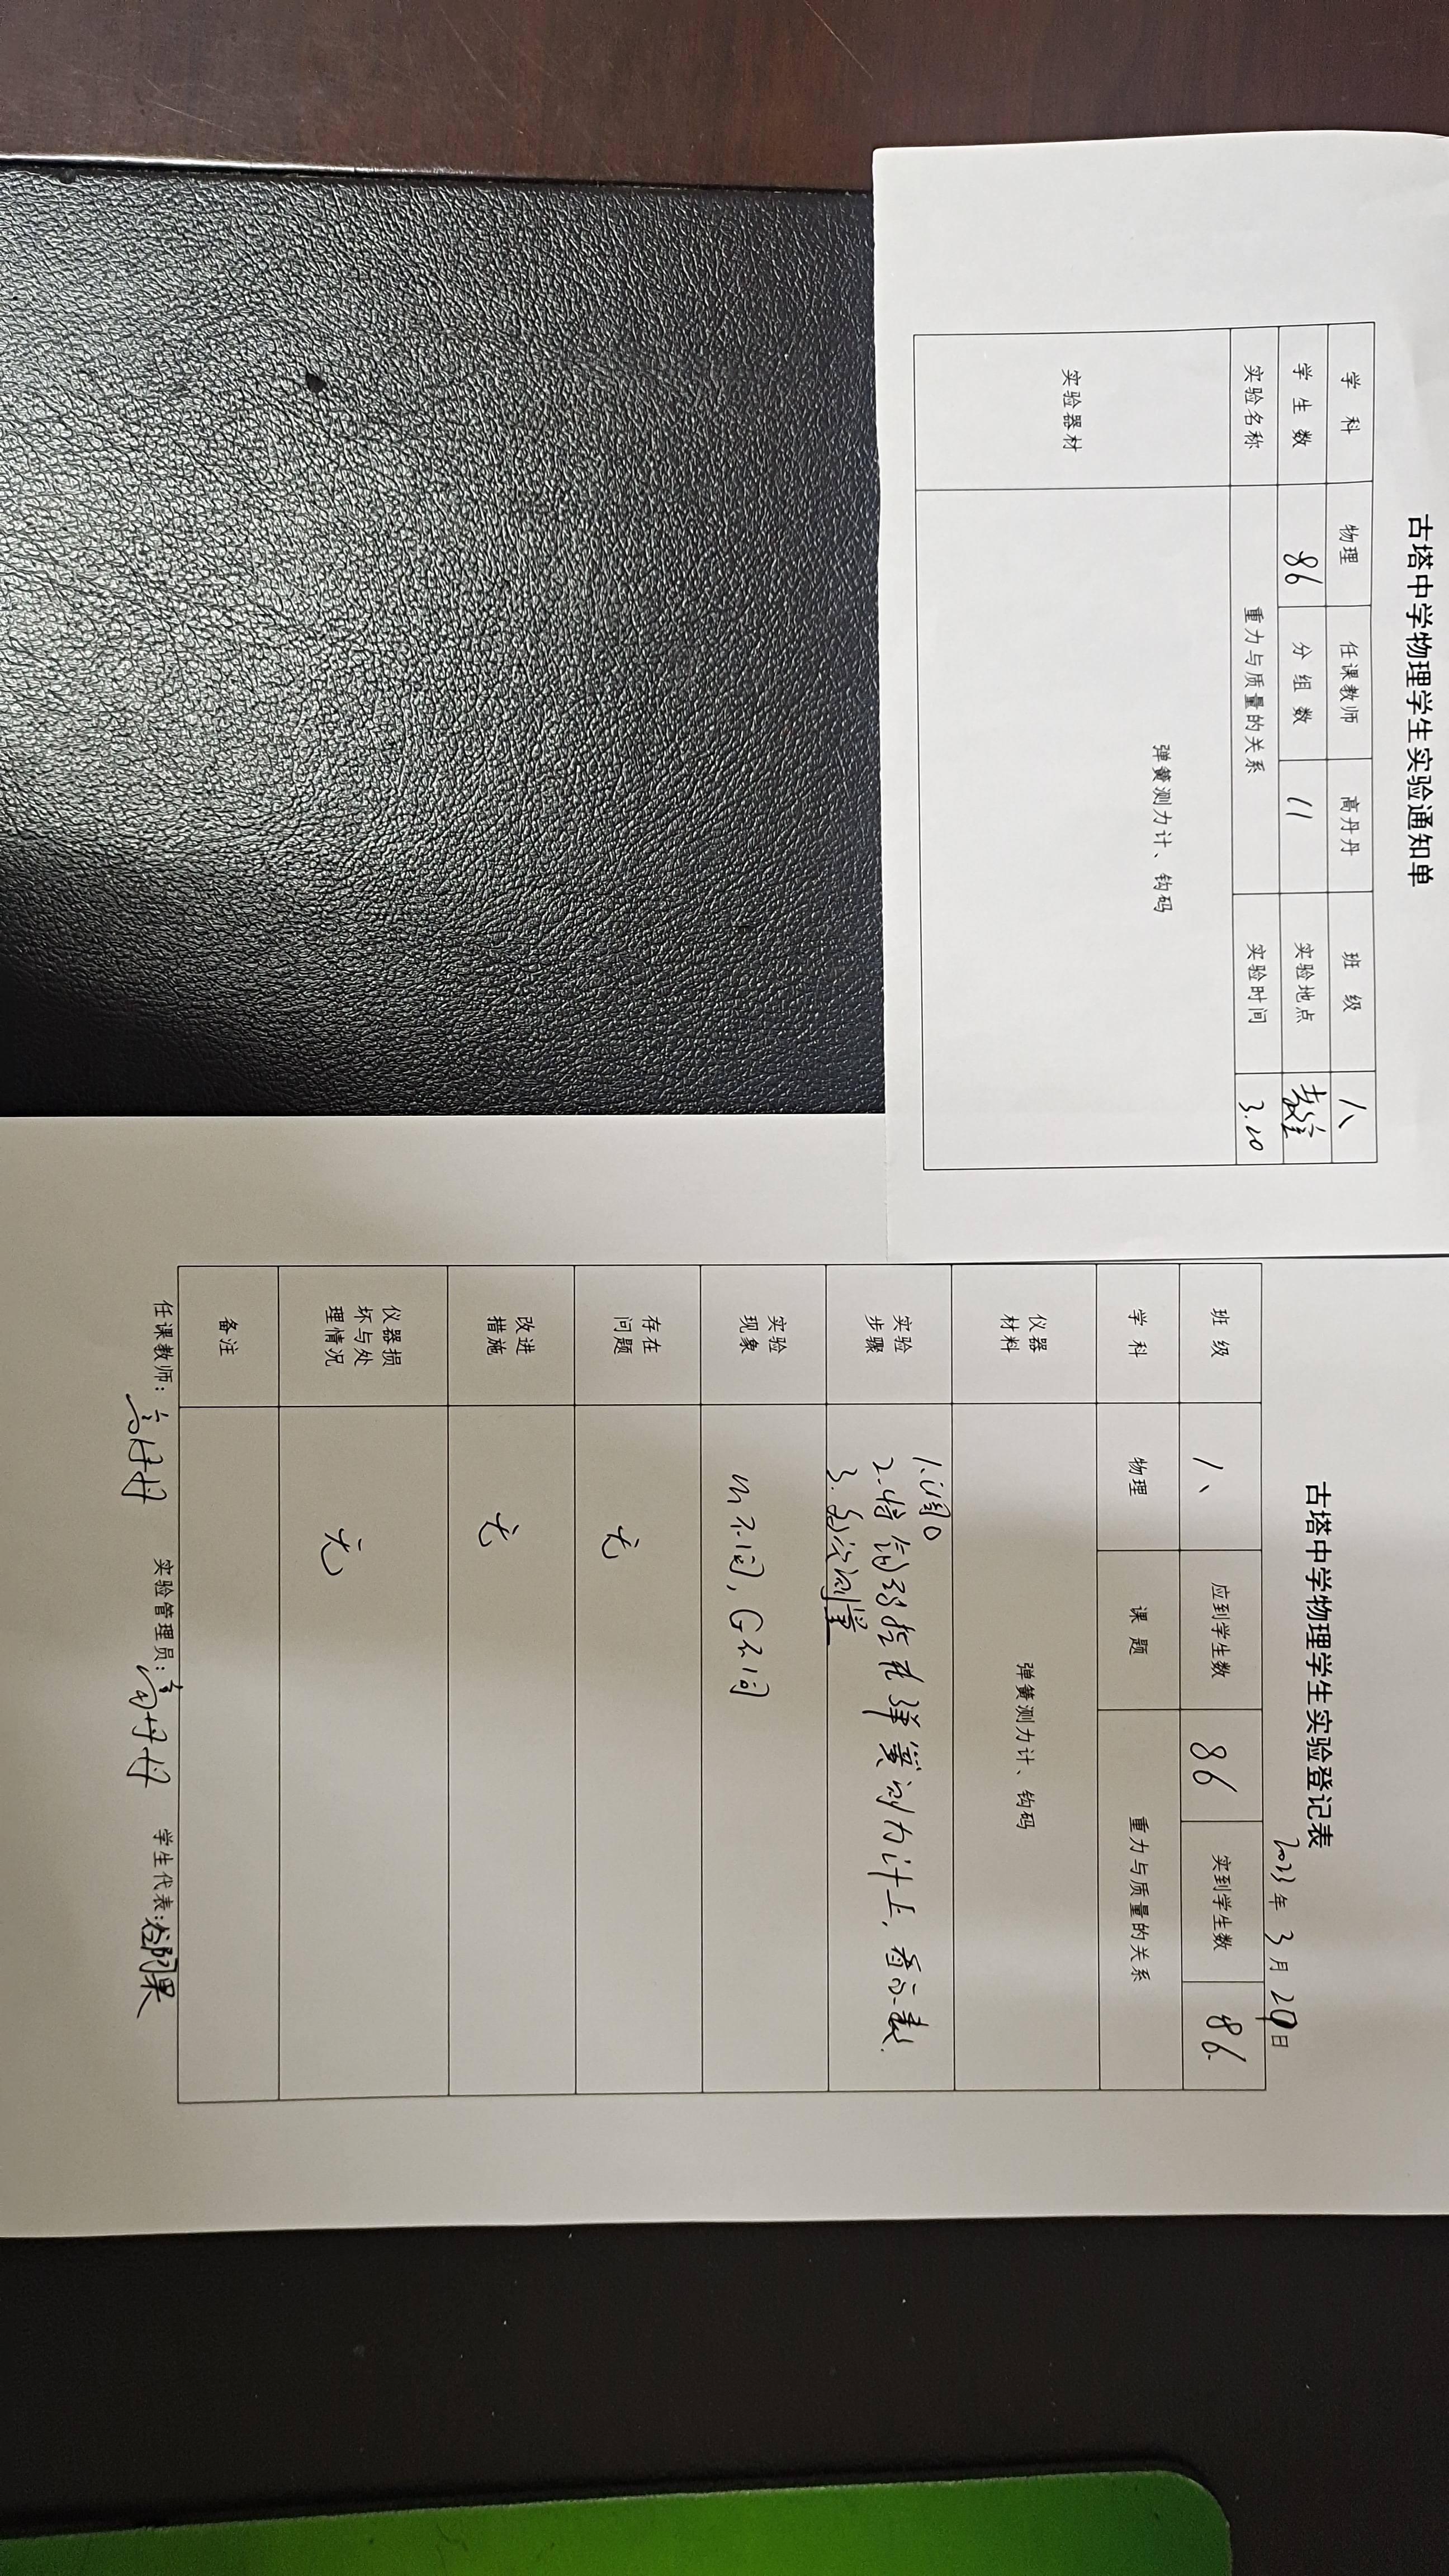 古塔中学物理学生实验通知单
学 科 物理 任课教师 高丹丹 班 级 八
学 生 数 86 分 组 数 11 实验地点 教室
实验名称 重力与质量的关系 实验时间 3.20
实验器材 弹簧测力计、钩码
古塔中学物理学生实验登记表
2023年 3月 20日
班 级 八 应到学生数 86 实到学生数 86
学 科 物理 课 题 重力与质量的关系
仪器
材料
弹簧测力计、钩码
实验
步骤
1.调0
2.将钩码挂在弹簧测力计上,看示数.
3.多次测量
实验
现象
m不同,G不同
存在
问题
无
改进
措施
无
仪器损
坏与处
理情况
无
备注
任课教师:高丹丹 实验管理员:高丹丹 学生代表: